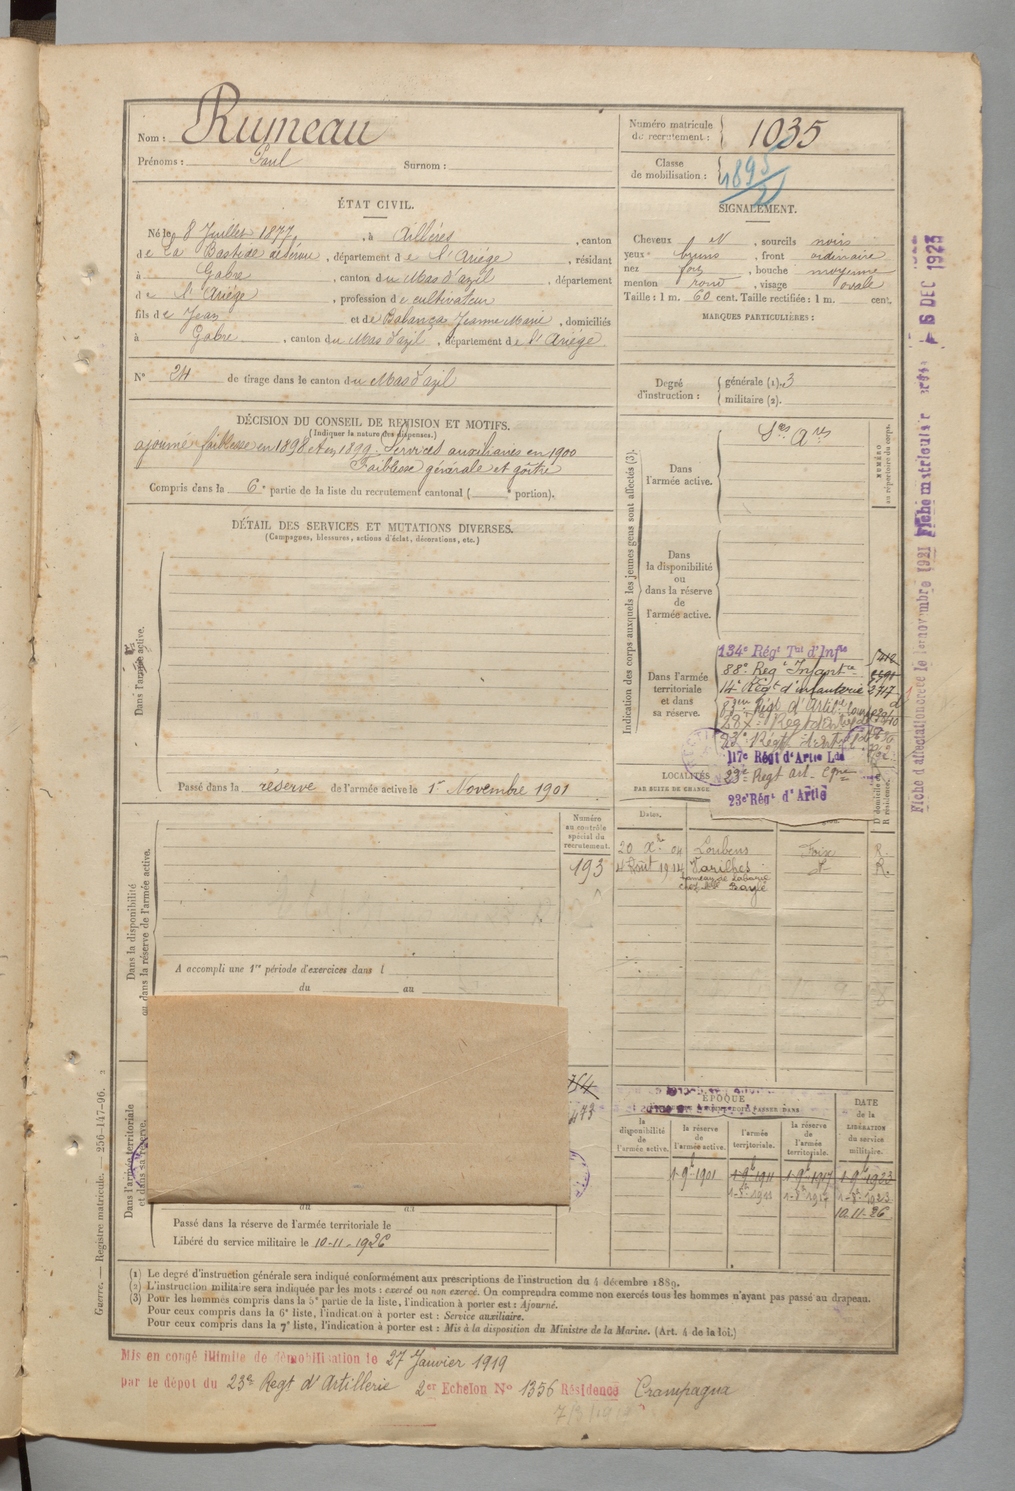 Nom : Rumeau
Prénoms : Paul Surnom :
Numéro matricule
de recrutement : 1035
Classe
de mobilisation : 1895/21
ÉTAT CIVIL.
Né le 8 Juillet 1877, à Aillères, canton
de La Bastide de Sérou, département de l'Ariége, résidant
à Gabre, canton du Mas d'azil, département
de l'Ariége, profession de cultivateur
fils de Jean et de Babança Jeanne Marie, domiciliés
à Gabre, canton du Mas d'azil, département de l'Ariége
N° 24 de tirage dans le canton du Mas d'azil
SIGNALEMENT.
Cheveux N, sourcils noirs
yeux bruns, front ordinaire
nez fort, bouche moyenne
menton rond, visage ovale
Taille : 1 m. 60 cent. Taille rectifiée : 1 m. cent.
MARQUES PARTICULIÈRES :
Degré
d'instruction : générale (1) 3
militaire (2).
DÉCISION DU CONSEIL DE REVISION ET MOTIFS.
(Indiquer la nature des dispenses.)
ajourné faiblesse en 1898 et en 1899. Services auxiliaires en 1900
Faiblesse générale et goitre
Compris dans la 6e partie de la liste du recrutement cantonal ( e portion).
DÉTAIL DES SERVICES ET MUTATIONS DIVERSES.
(Campagnes, blessures, actions d'éclat, décorations, etc.)
Dans l'armée active.
Passé dans la réserve de l'armée active le 1er Novembre 1901
Indication des corps auxquels les jeunes gens sont affectés (3).
NUMÉRO
au répertoire du corps.
Dans
l'armée active.
Sces Ares
Dans
la disponibilité
ou
dans la réserve
de
l'armée active.
Dans l'armée
territoriale
et dans
sa réserve.
134e Régt Tal d'Infie
88e Regt Infantrie
14e Regt d'infanterie
117e Régt d'Artie Lde
23e Regt art. Cgne
23e Régt d'Artie
LOCALITÉS
PAR SUITE DE CHANGE
Dates.
D domicile
R résidence.
20 Xbre 04 Loubens Foix R.
4 Août 1914 Varilhes R.
Numéro
au contrôle
spécial du
recrutement.
193
Dans la disponibilité
ou dans la réserve de l'armée active.
A accompli une 1re période d'exercices dans l
du au
Dans l'armée territoriale
et dans sa réserve.
Passé dans la réserve de l'armée territoriale le
Libéré du service militaire le 10-11-1926
ÉPOQUE
la
disponibilité
de
l'armée active.
la réserve
de
l'armée active.
l'armée
territoriale.
la réserve
de
l'armée
territoriale.
DATE
de la
LIBÉRATION
du service
militaire.
1-9b-1901 1-9b-1911 1-9b-1917 1-9b-1923
10.11-26
(1) Le degré d'instruction générale sera indiqué conformément aux prescriptions de l'instruction du 4 décembre 1889.
(2) L'instruction militaire sera indiquée par les mots : exercé ou non exercé. On comprendra comme non exercés tous les hommes n'ayant pas passé au drapeau.
(3) Pour les hommes compris dans la 5e partie de la liste, l'indication à porter est : Ajourné.
Pour ceux compris dans la 6e liste, l'indication à porter est : Service auxiliaire.
Pour ceux compris dans la 7e liste, l'indication à porter est : Mis à la disposition du Ministre de la Marine. (Art. 4 de la loi.)
Mis en congé illimité de démobilisation le 27 Janvier 1919
par le dépot du 23e Regt d'Artillerie 2er Echelon N° 1356 Résidence Crampagna
Guerre. — Registre matricule. — 256-147-96.
Fiche d'affectation créée le 1er novembre 1921 Fiche matriculaire créée 6 DEC 1923